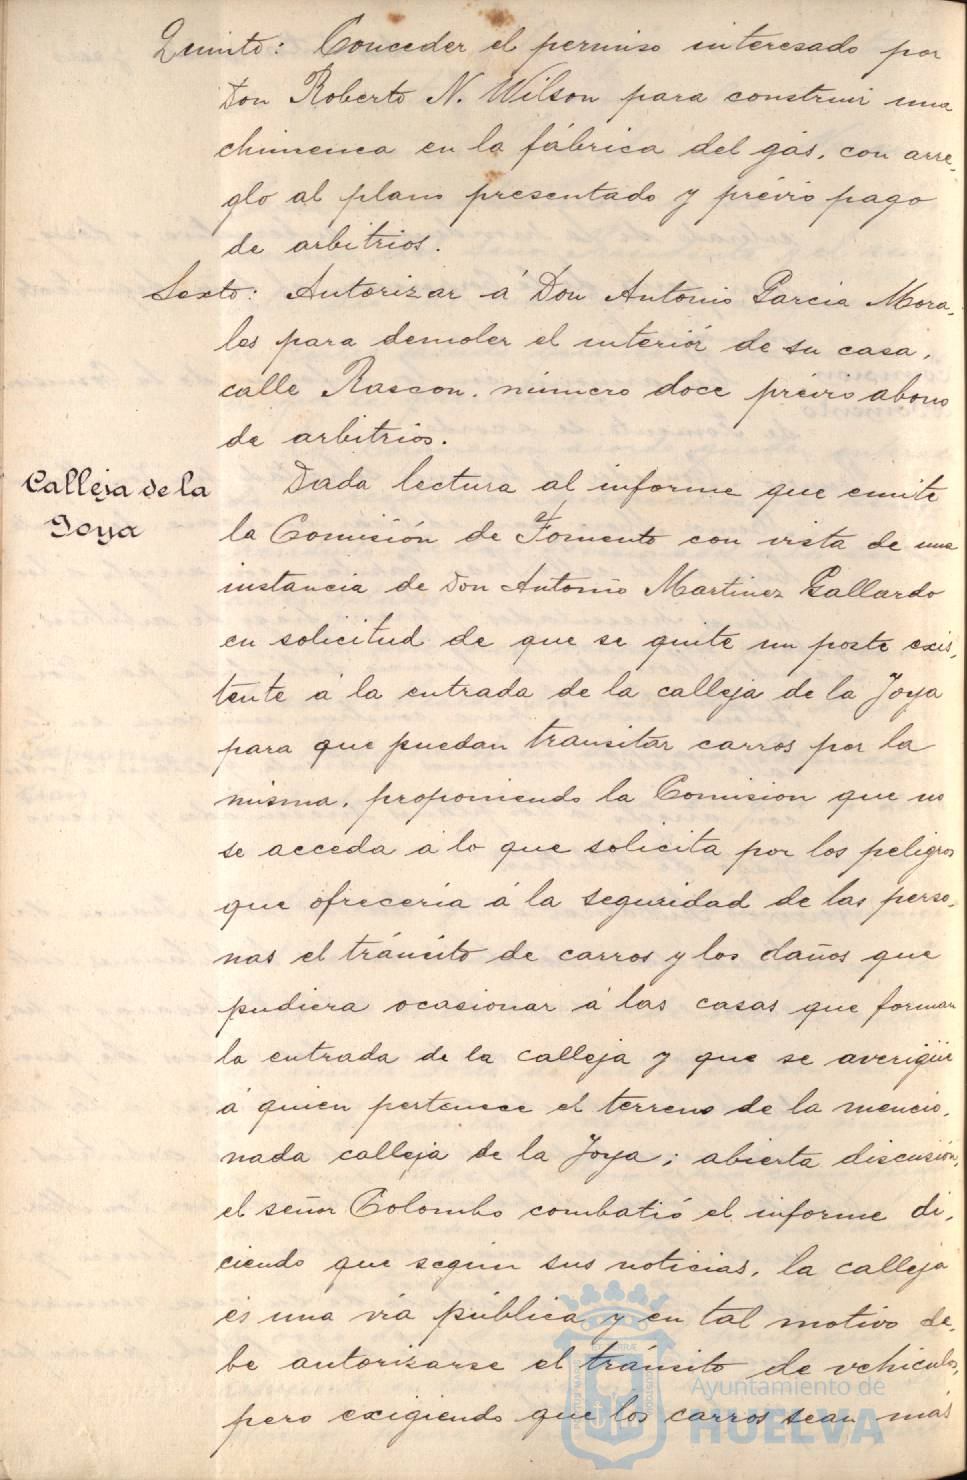 Quinto: Conceder el permiso interesado por
Don Roberto N. Wilson para construir una
chimenea en la fábrica del gás, con arre-
glo al plano presentado y prévio pago
de arbitrios.
Sexto: Autorizar á Don Antonio Garcia Mora-
les para demoler el interiór de su casa,
calle Rascon, número doce prévio abono
de arbitrios.
Calleja de la
Joya
Dada lectura al informe que emite
la Comisión de Fomento con vista de una
instancia de Don Antonio Martinez Gallardo
en solicitud de que se quite un poste exis-
tente á la entrada de la calleja de la Joya
para que puedan transitar carros por la
misma, proponiendo la Comision que no
se acceda á lo que solicita por los peligros
que ofreceria á la seguridad de las perso-
nas el tránsito de carros y los daños que
pudiera ocasionar á las casas que forman
la entrada de la calleja y que se averigüe
á quien pertenece el terreno de la mencio-
nada calleja de la Joya; abierta discusión,
el señor Colombo combatió el informe di-
ciendo que segun sus noticias, la calleja
es una via pública y en tal motivo de-
be autorizarse el tránsito de vehiculos,
pero exigiendo que los carros sean mas
Ayuntamiento de
HUELVA